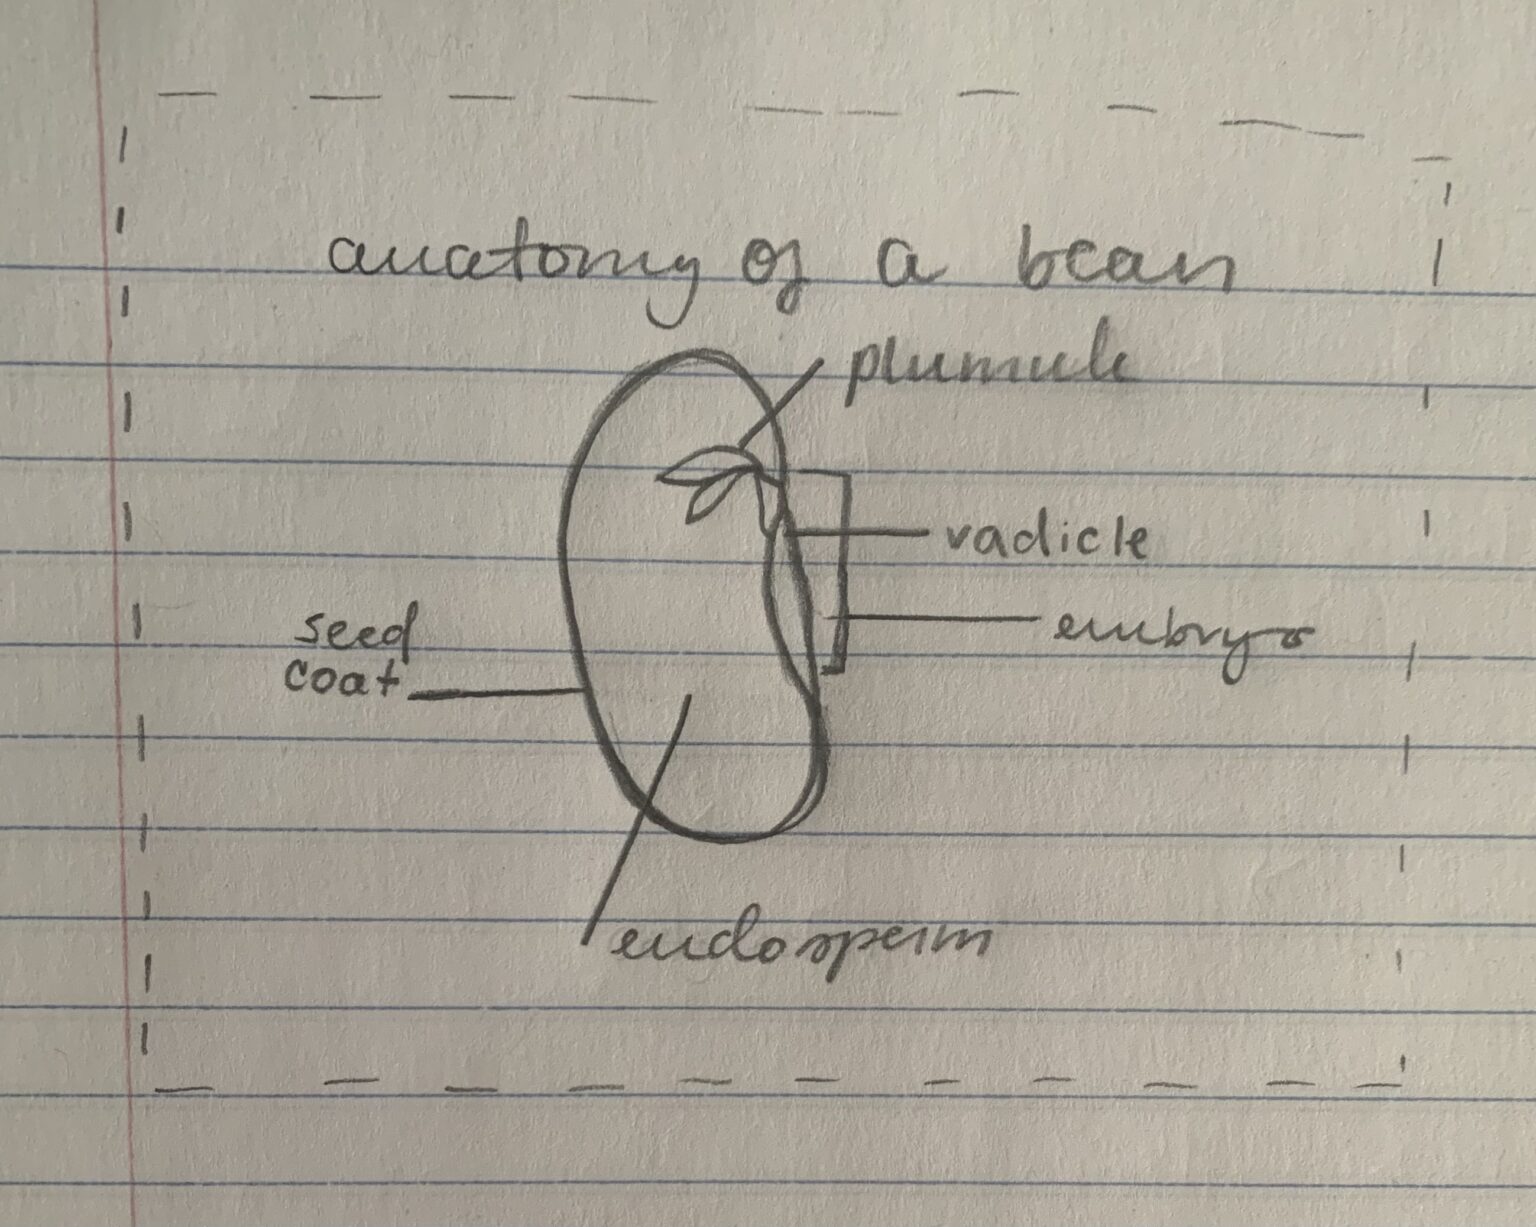 anatomy of a bean
plumule
radicle
embryo
seed
coat
endosperm